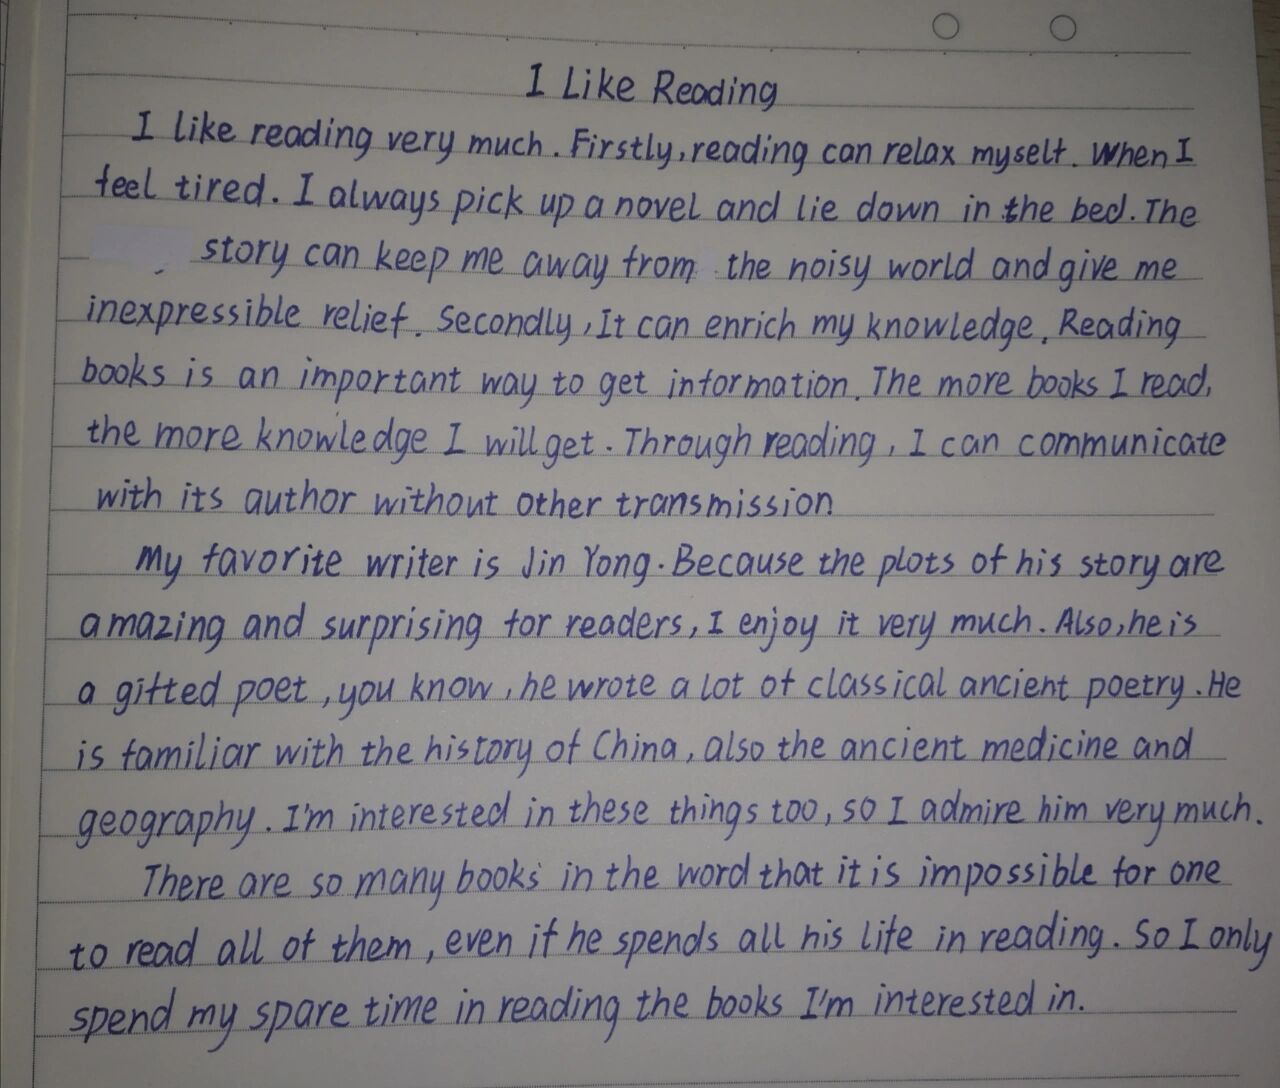 I Like Reading
I like reading very much. Firstly, reading can relax myself. When I
feel tired. I always pick up a novel and lie down in the bed. The
story can keep me away from the noisy world and give me
inexpressible relief. Secondly, It can enrich my knowledge. Reading
books is an important way to get information. The more books I read,
the more knowledge I will get. Through reading, I can communicate
with its author without other transmission
My favorite writer is Jin Yong. Because the plots of his story are
amazing and surprising for readers, I enjoy it very much. Also, he is
a gifted poet, you know, he wrote a lot of classical ancient poetry. He
is familiar with the history of China, also the ancient medicine and
geography. I'm interested in these things too, so I admire him very much.
There are so many books in the word that it is impossible for one
to read all of them, even if he spends all his life in reading. So I only
spend my spare time in reading the books I'm interested in.